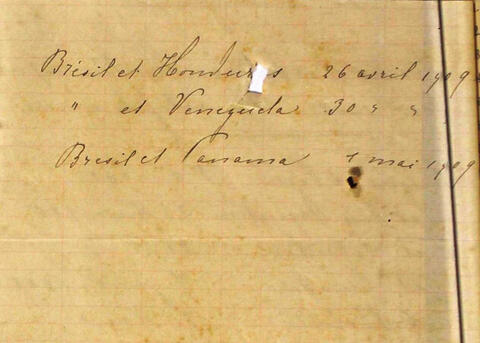 Brésil et Honduras 26 avril 1909
" et Venezuela 30 " "
Bresil et Panama 1 mai 1909